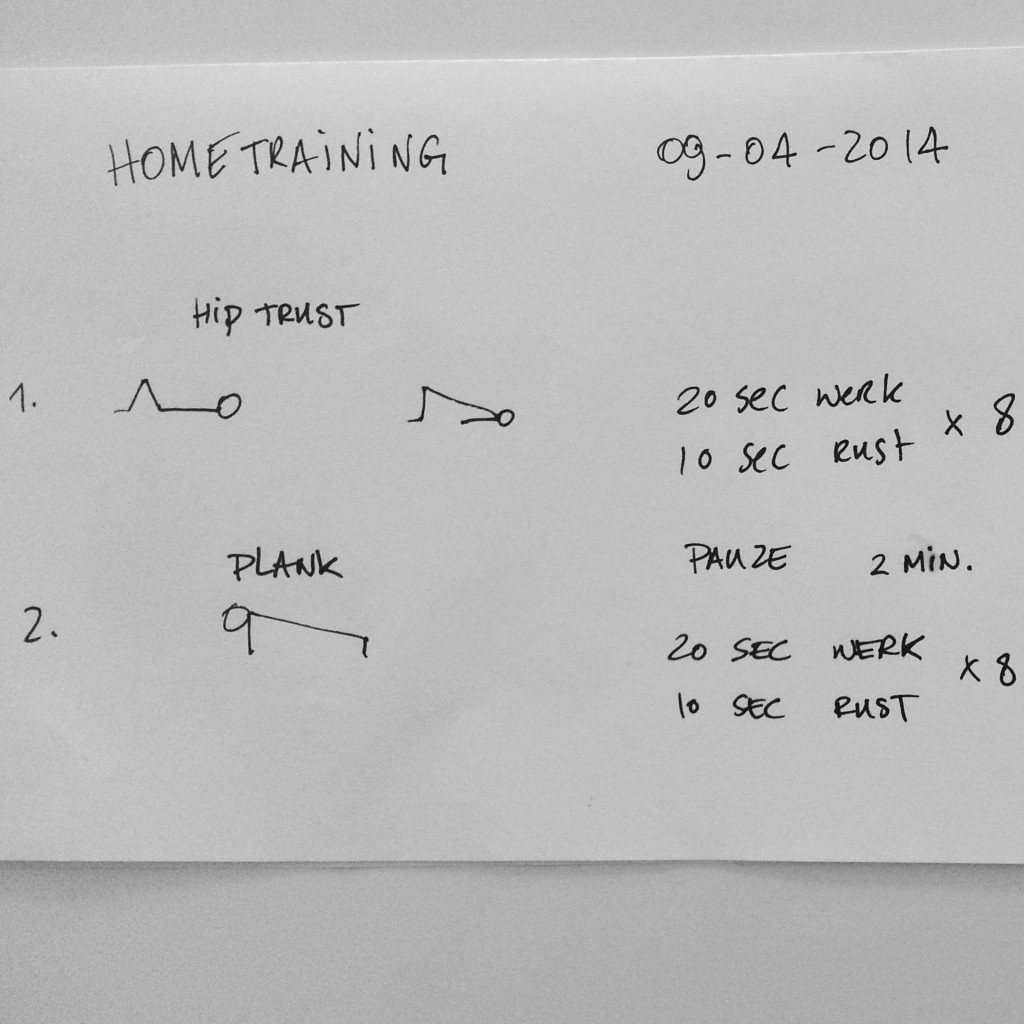 HOMETRAINING 09-04-2014
HIP TRUST
1. 20 sec werk
10 sec RUST x 8
PLANK PAUZE 2 MIN.
2. 20 SEC WERK
10 SEC RUST x 8